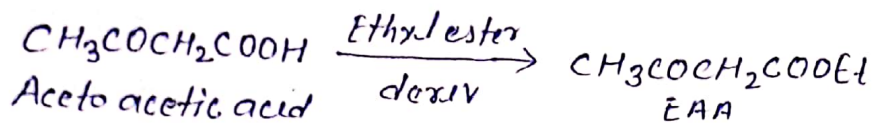 CH₃COCH₂COOH Ethyl ester → CH₃COCH₂COOEt
Aceto acetic acid deriv EAA